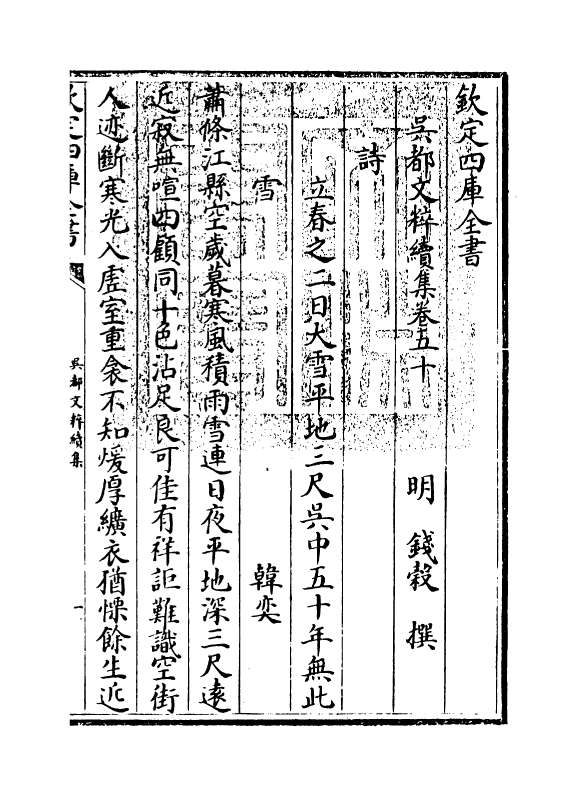 欽定四庫全書
吳都文粹續集卷五十
明 錢穀 撰
詩
立春之二日大雪平地三尺吳中五十年無此
雪
韓奕
蕭條江縣空歲暮寒風積雨雪連日夜平地深三尺遠
近寂無喧四顧同十色沾足良可佳有祥詎難識空街
人迹斷寒光入虛室重衾不知煖厚纊衣猶慄餘生近
欽定四庫全書
吳都文粹續集
一